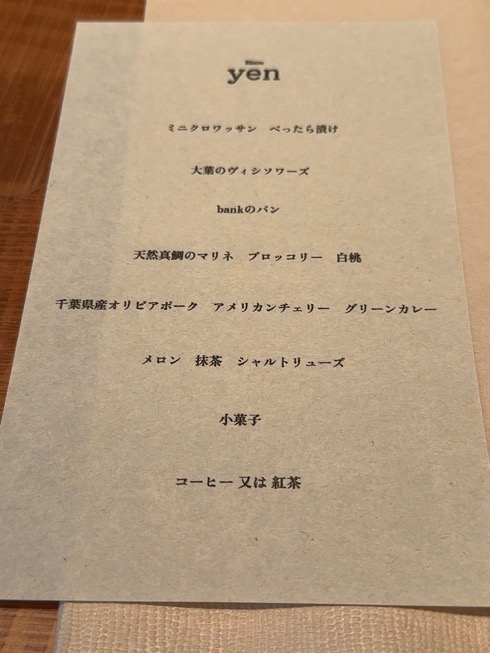 Bistro
yen
ミニクロワッサン べったら漬け
大葉のヴィシソワーズ
bankのパン
天然真鯛のマリネ ブロッコリー 白桃
千葉県産オリビアポーク アメリカンチェリー グリーンカレー
メロン 抹茶 シャルトリューズ
小菓子
コーヒー 又は 紅茶